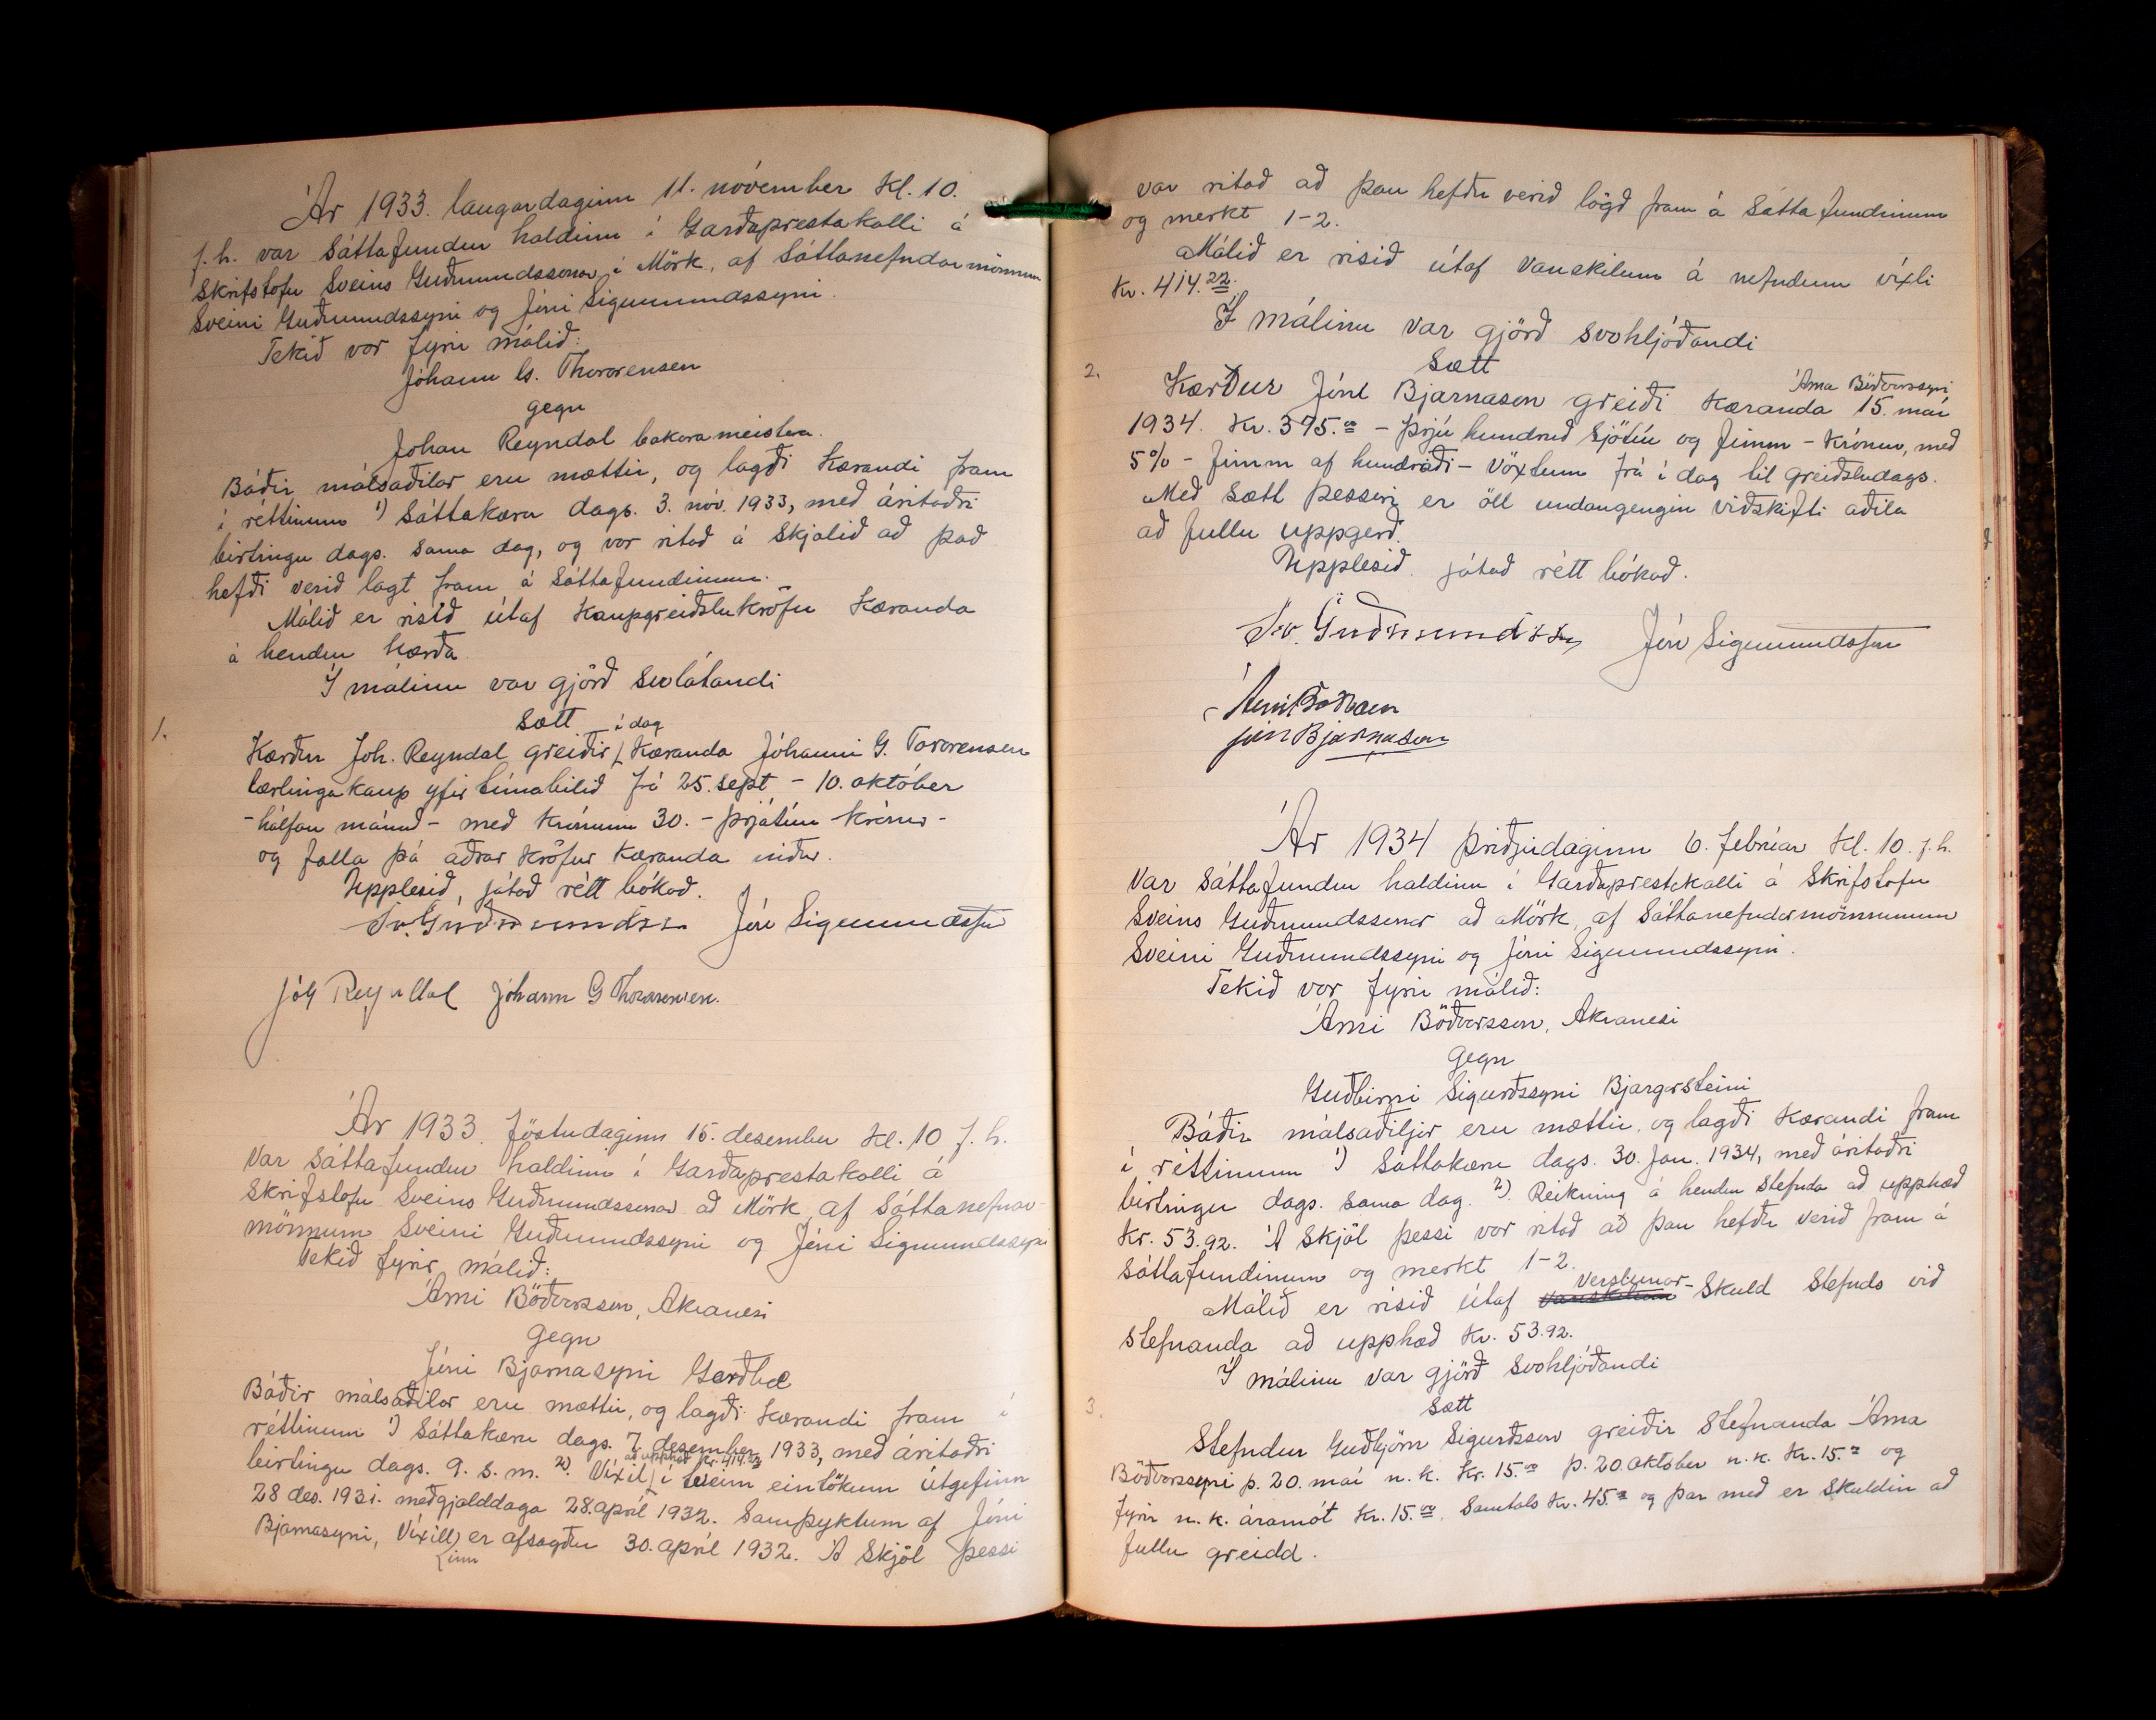 Ár 1933. laugardaginn 11. nóvember kl. 10.
f.h. var sáttafundur haldinn í Garðaprestakalli á
skrifstofu Sveins Guðmundssonar í Mörk, af sáttanefndarmönnum
Sveini Guðmundssyni og Jóni Sigmundssyni.
Tekið var fyrir málið:
Jóhann G. Thorarensen
gegn
Johan Reyndal bakarameistara.
Báðir málsaðilar eru mættir, og lagði kærandi fram
í réttinum 1) Sáttakæru dags. 3. nóv. 1933, með áritaðri
birtingu dags. sama dag, og var ritað á skjalið að það
hefði verið lagt fram á sáttafundinum.
Málið er risið útaf kaupgreiðslukröfu kæranda
á hendur kærða.
Í málinu var gjörð svolátandi
1.
Sætt
Kærður Joh. Reyndal greiðir í dag kæranda Jóhanni G. Tororensen
lærlingakaup yfir tímabilið frá 25. sept - 10. október
- hálfan mánuð - með krónum 30. - þrjátíu krónur -
og falla þá aðrar kröfur kæranda niður.
Upplesið, játað rétt bókað.
Sv. Guðmundss. Jón Sigmundsson
Jóh Reyndal Jóhann G Thorarensen.
Ár 1933. föstudaginn 15. desember kl. 10 f.h.
var sáttafundur haldinn í Garðaprestakalli á
skrifstofu Sveins Guðmundssonar að Mörk, af sáttanefnar-
mönnum Sveini Guðmundssyni og Jóni Sigmundssyni
Tekið fyrir málið:
Árni Böðvarsson, Akranesi
gegn
Jóni Bjarnasyni Garðbæ
Báðir málsaðilar eru mættir, og lagði kærandi fram í
réttinum 1) Sáttakæru dags. 7. desember 1933, með áritaðri
birtingu dags. 9. s.m. 2). Víxil að upphæð kr. 414.22 í tveim eintökum útgefinn
28 des. 1931. með gjalddaga 28. apríl 1932. Samþyktum af Jóni
Bjarnasyni, Víxillinn er afsagður 30. apríl 1932. Á skjöl þessi
var ritað að þau hefðu verið lögð fram á sáttafundinum
og merkt 1-2.
Málið er risið útaf vanskilum á nefndum víxli
kr. 414.22.
Í málinu var gjörð svohljóðandi
2.
Sætt
Kærður Jóni Bjarnason greiði kæranda Árna Böðvarssyni 15. maí
1934. Kr. 375.00 - þrjú hundruð sjötíu og fimm - krónur, með
5% - fimm af hundraði - vöxtum frá í dag til greiðsludags.
Með sætt þessari er öll undangengin viðskifti aðila
að fullu uppgerð.
Upplesið játað rétt bókað.
Sv. Guðmundsson Jón Sigmundsson
Árni Böðvarsson
Jón Bjarnason
Ár 1934 þriðjudaginn 6. febrúar kl. 10. f.h.
var sáttafundur haldinn í Garðaprestakalli á skrifstofu
Sveins Guðmundssonar að Mörk, af sáttanefndarmönnunum
Sveini Guðmundssyni og Jóni Sigmundssyni.
Tekið var fyrir málið:
Árni Böðvarsson, Akranesi
gegn
Guðbirni Sigurðssyni Bjargarsteini
Báðir málsaðiljar eru mættir, og lagði kærandi fram
í réttinum 1) Sáttakæru dags. 30. jan. 1934, með áritaðri
birtingu dags. sama dag. 2). Reikning á hendur stefnda að upphæð
kr. 53.92. Á skjöl þessi var ritað að þau hefðu verið fram á
sáttafundinum og merkt 1-2.
Málið er risið útaf vanskilum verslunar-skuld stefnds við
stefnanda að upphæð kr. 53.92.
Í málinu var gjörð svohljóðandi
3.
Sætt
Stefndur Guðbjörn Sigurðsson greiðir stefnanda Árna
Böðvarssyni þ. 20. maí n.k. kr. 15.00 þ. 20. október n.k. kr. 15.00 og
fyrir n.k. áramót kr. 15.00. Samtals kr. 45.00 og þar með er skuldin að
fullu greidd.